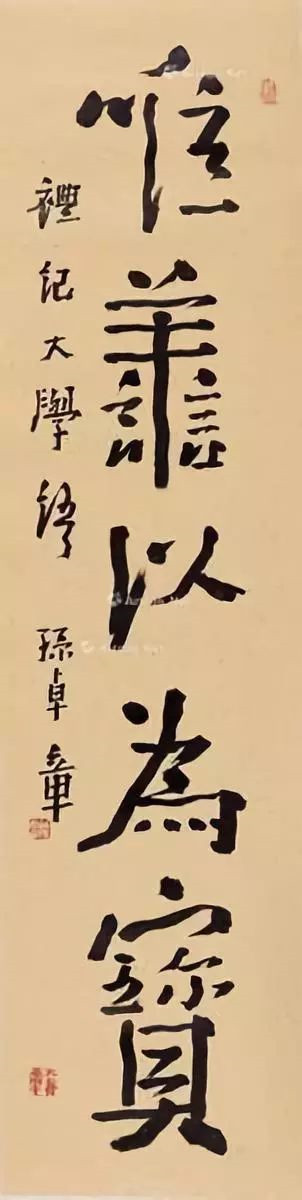 惟譱以為寶
禮記大學語 孫卓章